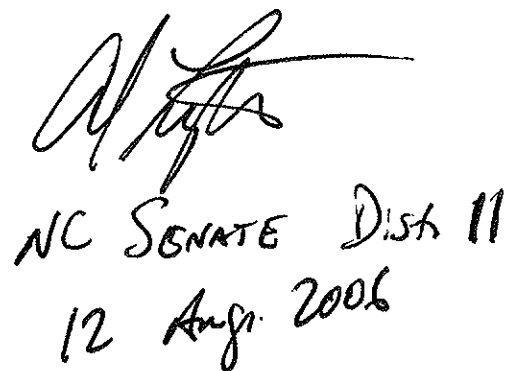 NC SENATE Dist 11
12 Aug. 2006